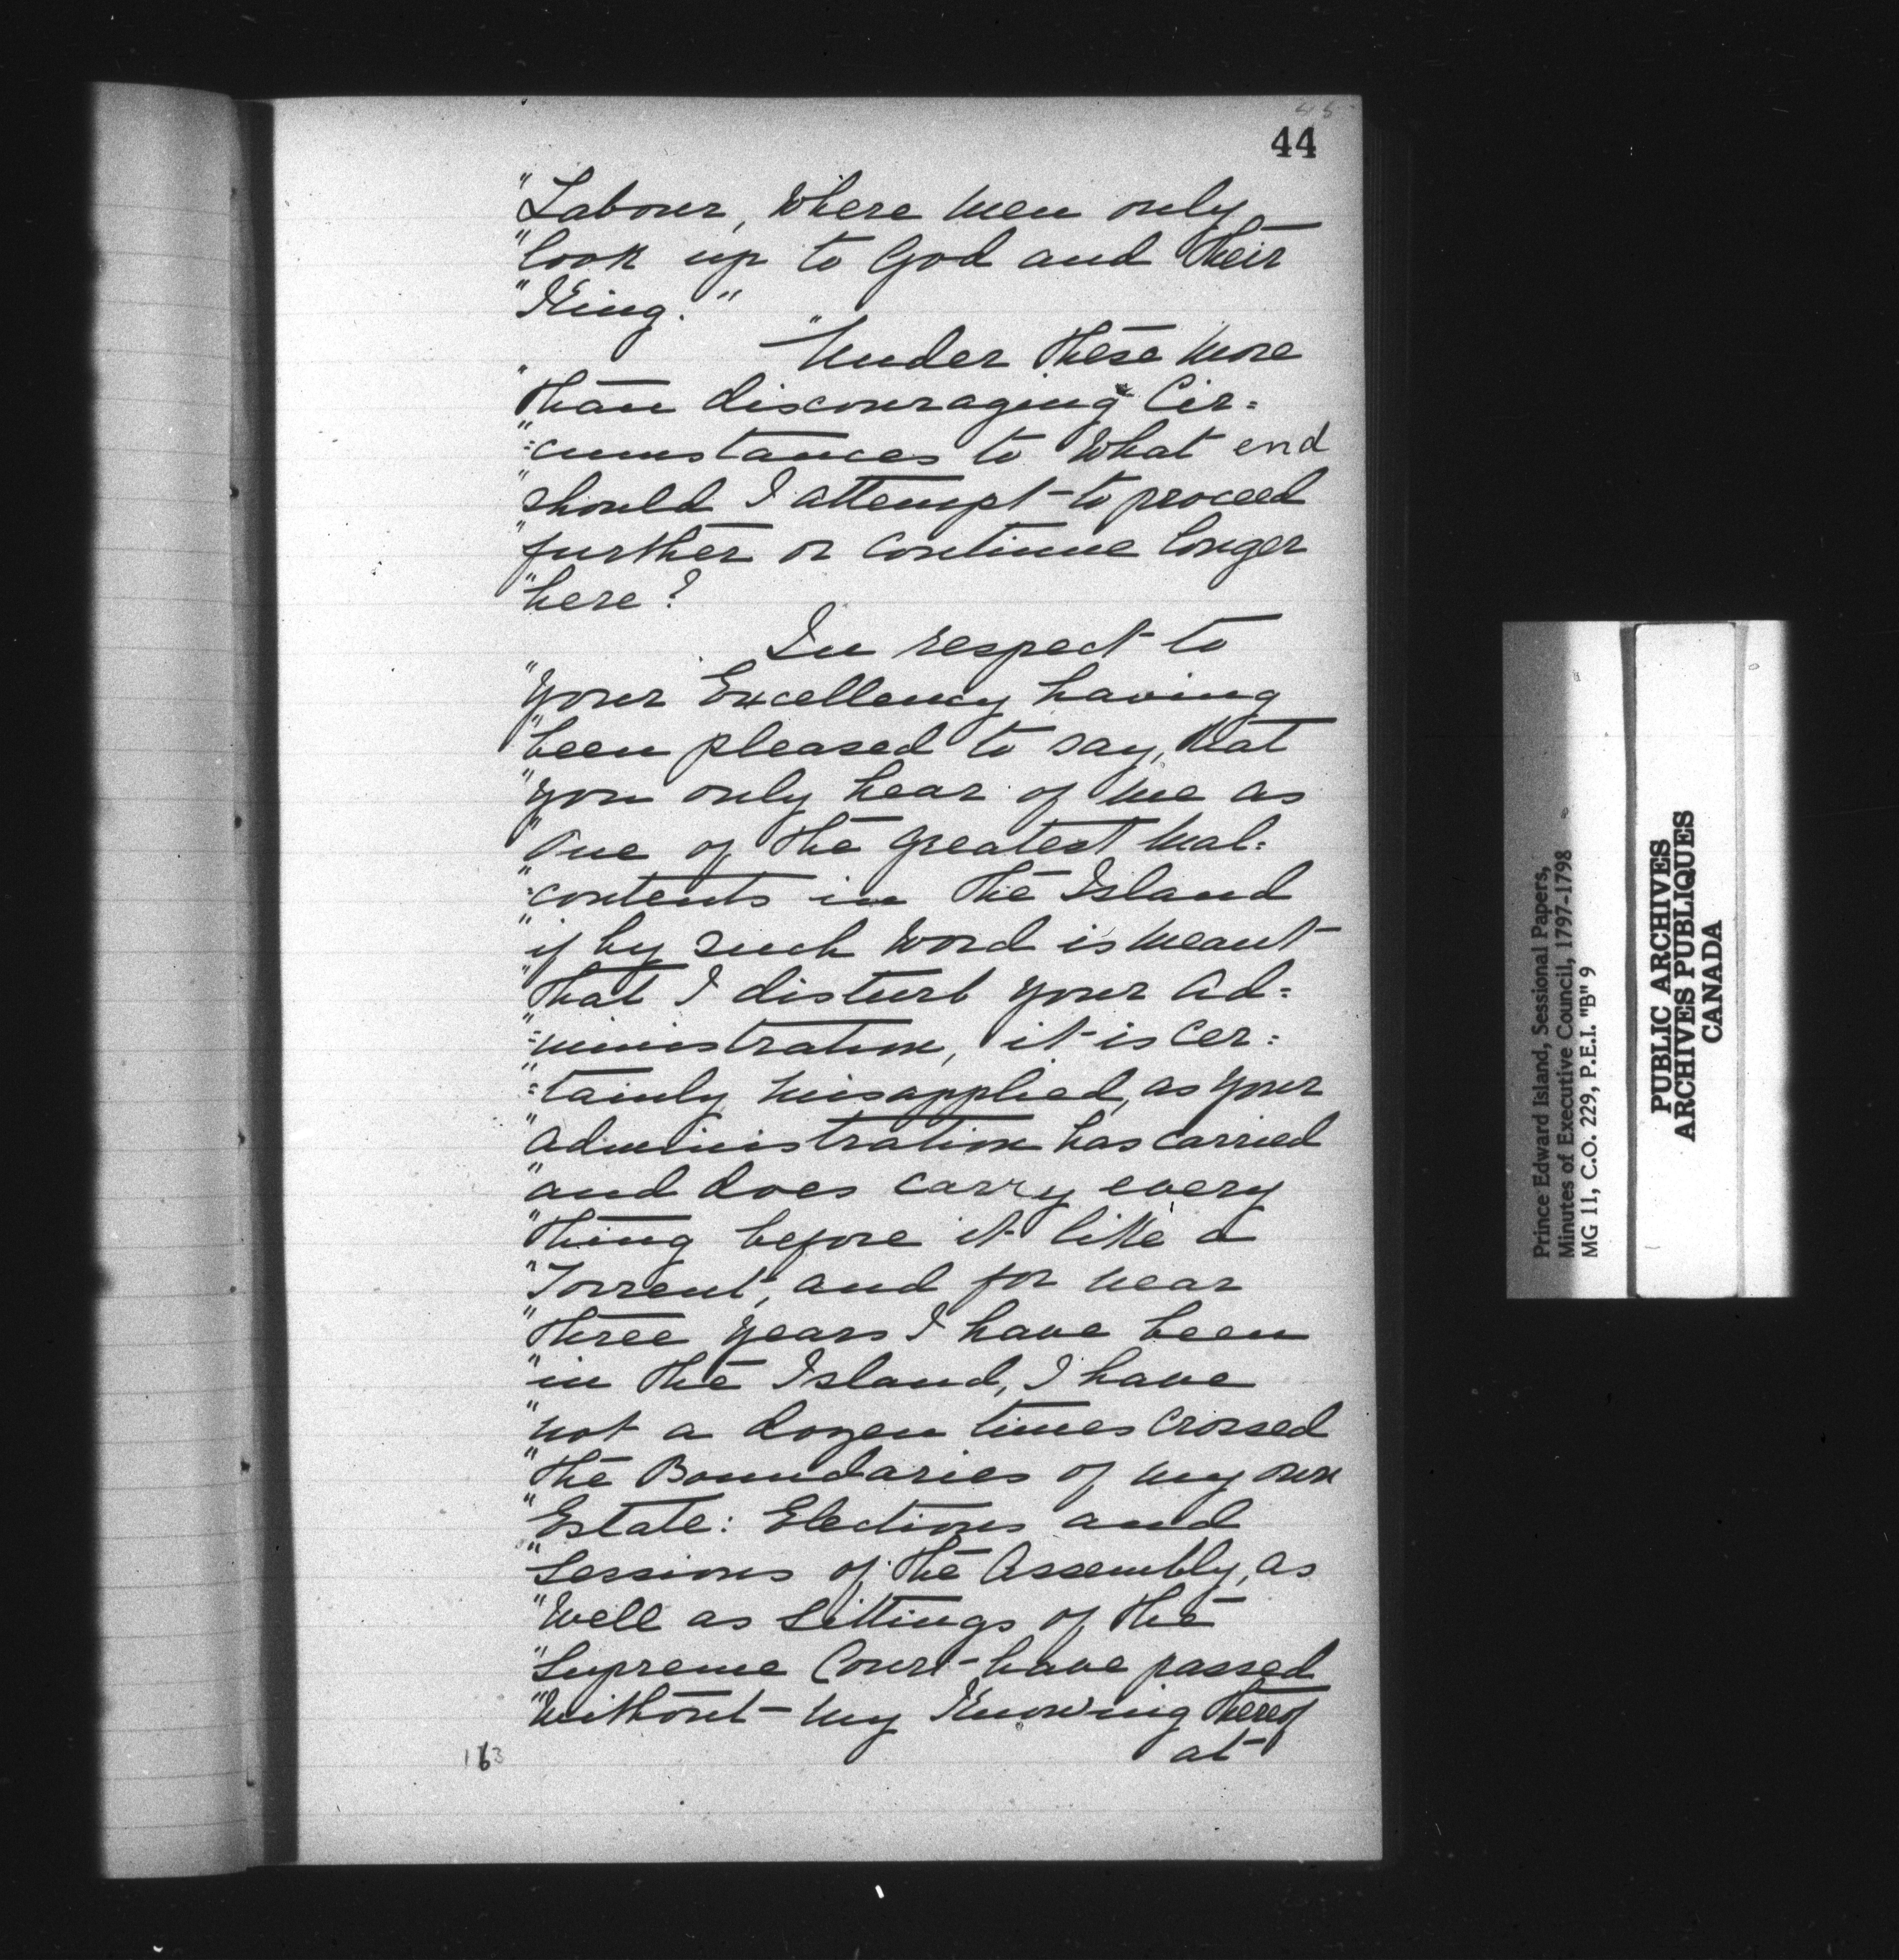 45
44
"Labour, Where Men only
"look up to God and their
"King."
"Under these More
"than discouraging Cir=
"=cumstances to What end
"should I attempt to proceed
"further or Continue longer
"here?
In respect to
"Your Excellency having
"been pleased to say, that
"you only hear of Me as
"One of the greatest Mal=
"=contents in the Island
"if by such Word is Meant
"that I disturb your Ad=
"=ministration, it is Cer=
"=tainly Misapplied, as your
"Administration has Carried
"and does Carry every
"thing before it like a
"Torrent, and for near
"three years I have been
"in the Island, I have
"not a dozen times Crossed
"the Boundaries of my own
"Estate: Elections and
"Sessions of the Assembly, as
"Well as Sittings of the
"Supreme Court have passed
"Without My Knowing thereof
at
163
Prince Edward Island, Sessional Papers,
Minutes of Executive Council, 1797-1798
MG 11, C.O. 229, P.E.I. "B" 9
PUBLIC ARCHIVES
ARCHIVES PUBLIQUES
CANADA